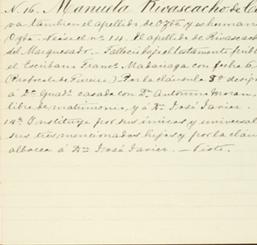 N. 16. Manuela Rivascacho de
va. tambien el apellido de Ogªª. y su herman
Ogªª. Nació el nº. 14. El apellido de Rivascac
del Marquesado. Falleció bajo el testamento
el Escribano Francº. Madariaga, con fecha 6
Por la cláusula 3ª. design
á Dª. Guadª. casada con Dn. Antonino Moran,
libre de matrimonio, y á Dn. José Javier.
14ª. Instituye por sus únicos y universal
sus tres mencionados hijos y por la cláu
albacea á Dn. José Javier.